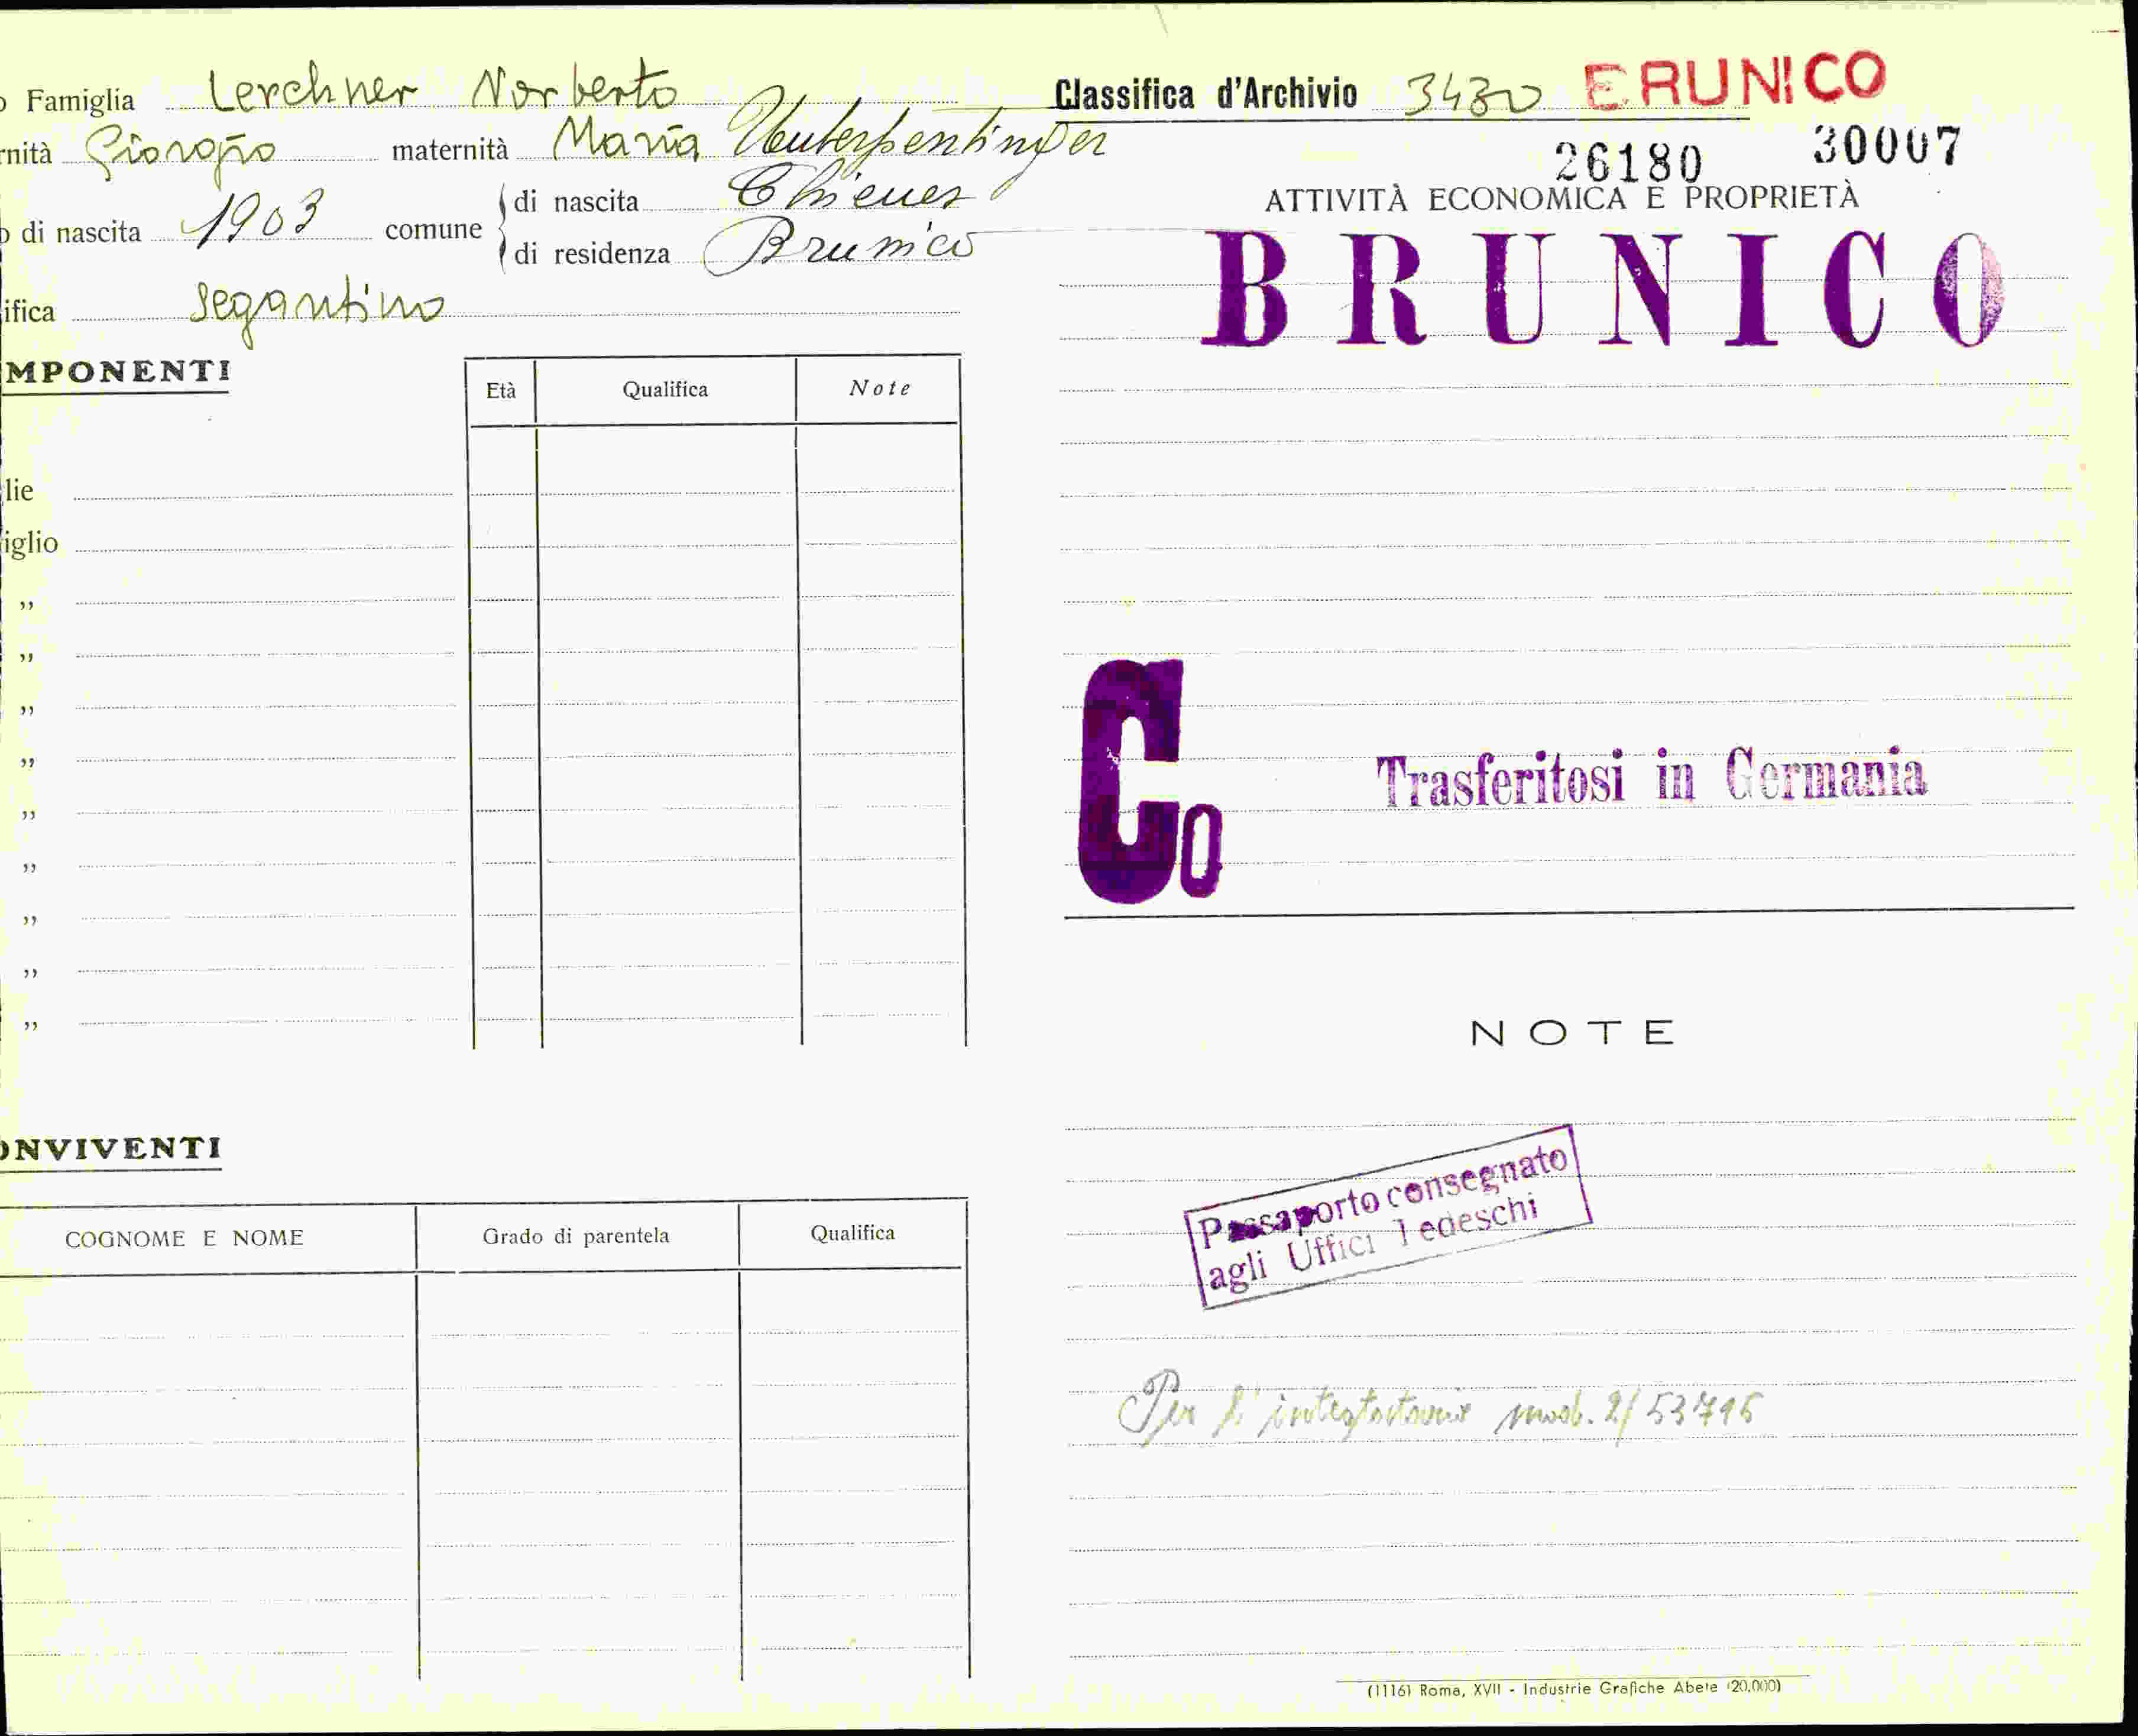 o Famiglia Lerchner Norberto
rnità Giorgio maternità Maria Unterpertinger
o di nascita 1903 comune
di nascita Chienes
di residenza Brunico
ifica segantino
MPONENTI
Età Qualifica Note
lie
iglio
„
„
„
„
„
„
„
„
„
ONVIVENTI
COGNOME E NOME Grado di parentela Qualifica
Classifica d'Archivio 3480 BRUNICO
26180 30007
ATTIVITÀ ECONOMICA E PROPRIETÀ
BRUNICO
Co
Trasferitosi in Germania
NOTE
Passaporto consegnato
agli Uffici Tedeschi
Per l'intestatario mod. 2/53795
(1116) Roma, XVII - Industrie Grafiche Abete (20.000)